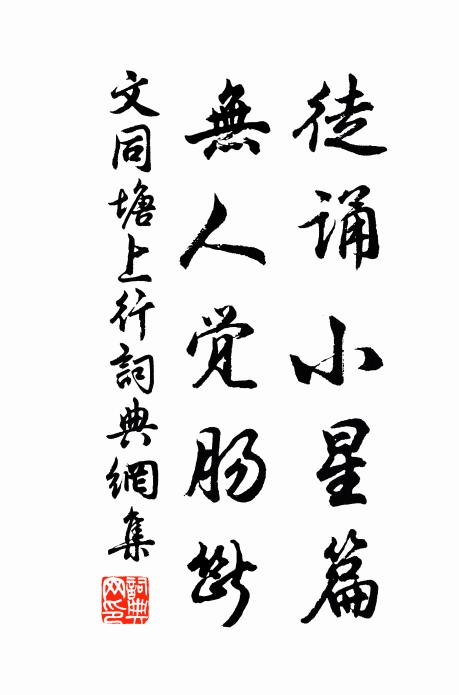 徒诵小星篇
無人觉肠断
文同塘上行詞典網集
詞典网印